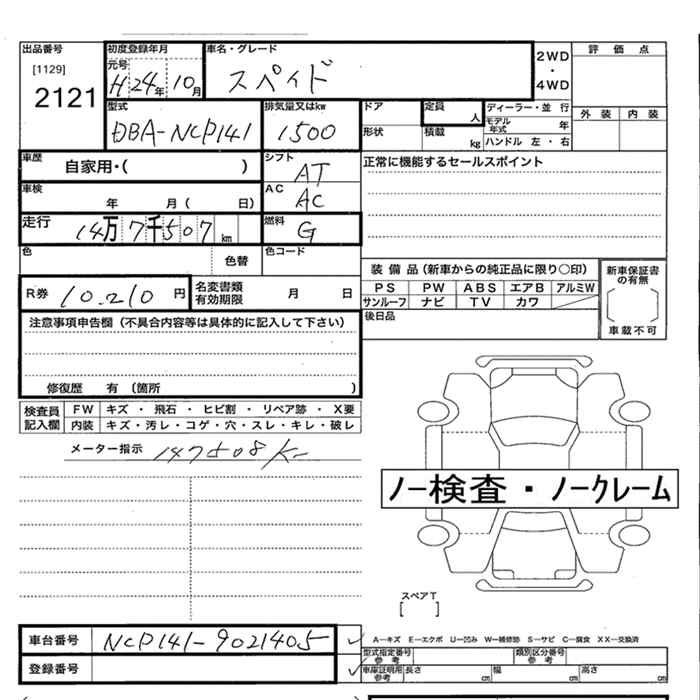 出品番号 初度登録年月 車名・グレード 2WD・4WD 評価点
[1129] 元号 H24年 10月 スペイド
2121
型式 排気量又はkw ドア 定員 人 ディーラー・並行 外装 内装
DBA-NCP141 1500 形状 積載 kg モデル年式 年
ハンドル 左・右
車歴 自家用・( ) シフト AT 正常に機能するセールスポイント
車検 年 月( 日) AC AC
走行 14万7千507km 燃料 G
色 色替 色コード
装備品(新車からの純正品に限り○印) 新車保証書の有無
PS PW ABS エアB アルミW
サンルーフ ナビ TV カワ
車載不可
R券 10.210円 名変書類有効期限 月 日
後日品
注意事項申告欄(不具合内容等は具体的に記入して下さい)
修復歴 有(箇所 )
検査員記入欄 FW キズ・飛石・ヒビ割・リペア跡・X要
内装 キズ・汚レ・コゲ・穴・スレ・キレ・破レ
メーター指示 147508K
ノー検査・ノークレーム
スペアT
[ ]
車台番号 NCP141-9021405
A―キズ E―エクボ U―凹み W―補修跡 S―サビ C―腐食 XX―交換済
登録番号
型式指定番号 参考 類別区分番号 参考
車庫証明用参考 長さ cm 幅 cm 高さ cm